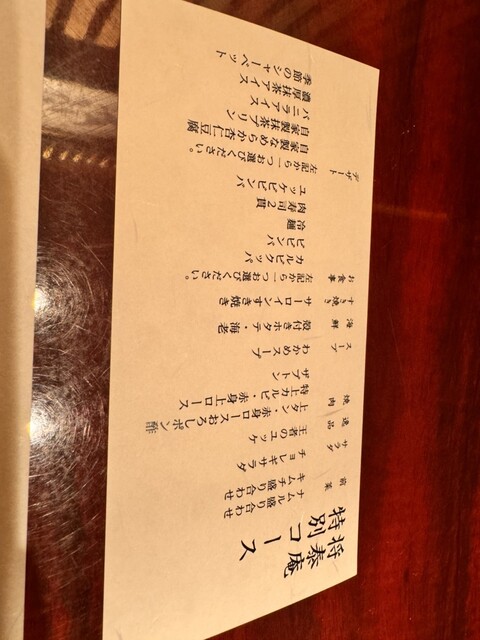 将泰庵
特別コース
前菜
ナムル盛り合わせ
キムチ盛り合わせ
サラダ
チョレギサラダ
逸品
王者のユッケ
焼肉
上タン・赤身ロースおろしポン酢
特上カルビ・赤身上ロース
ザブトン
スープ
わかめスープ
海鮮
殻付きホタテ・海老
すき焼き
サーロインすき焼き
お食事
左記から一つお選びください。
カルビクッパ
ビビンバ
冷麺
肉寿司2貫
ユッケビビンバ
デザート
左記から一つお選びください。
自家製なめらか杏仁豆腐
自家製抹茶プリン
バニラアイス
濃厚抹茶アイス
季節のシャーベット